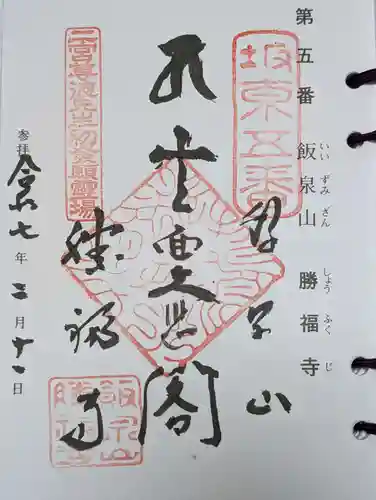 第五番 飯泉山 勝福寺
いい ずみ さん しょう ふく じ
坂東五番
飯泉山
十一面大悲閣
二宮尊徳先生初発願霊場
勝福寺
参拝 令和七年三月十一日
飯泉山
勝福寺